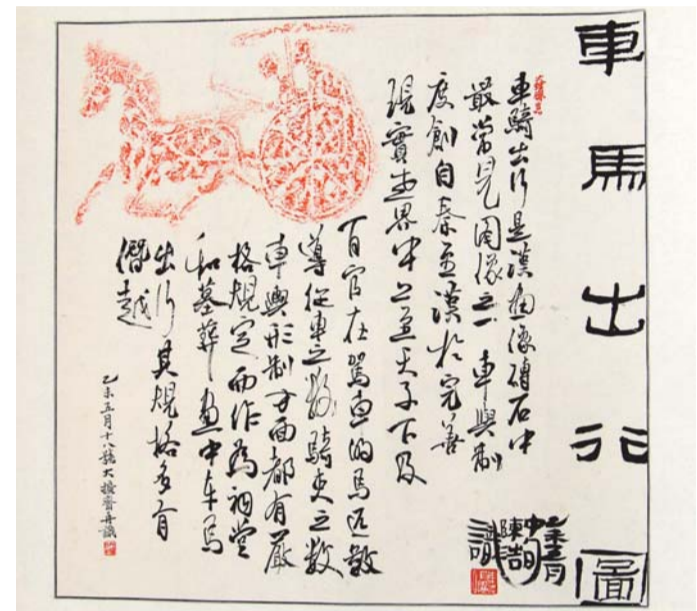 車馬出行圖
乙未五月
中旬
陳浩
識
車騎出行是漢画像磚石中
最常見圖像之一 車輿制
度創自秦至漢打完善
現實世界中上至天子下及
百官在駕車的馬匹數
導從車之數騎吏之數
車輿形制方面都有嚴
格規定而作為祠堂
和墓葬画中车馬
出行其規格多有
僭越
乙未五月十八號大
齋再識